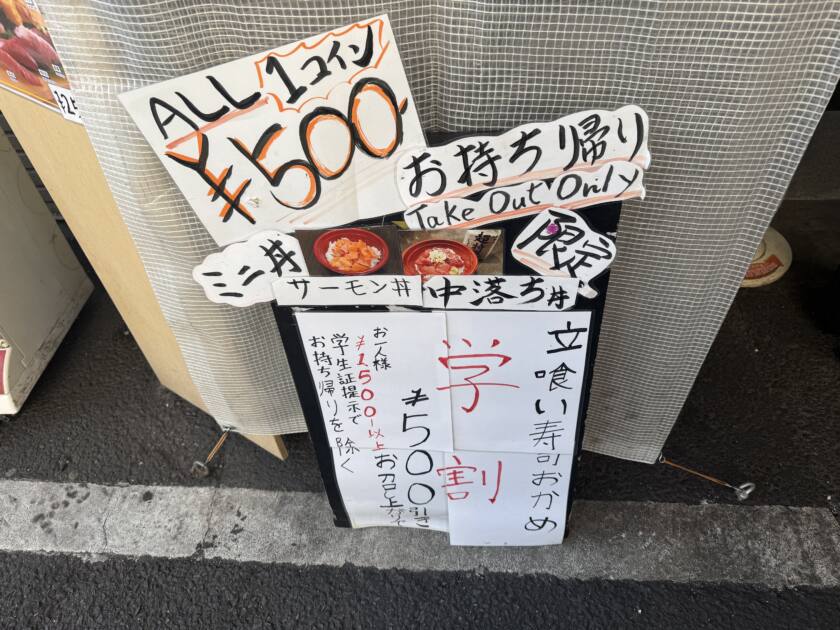 ALL 1コイン
¥500
お持ち帰り
Take Out Only
限定
ミニ丼
サーモン丼
中落ち丼
立喰い寿司おかめ
学割
¥500引き
お一人様
¥1500-以上お召し上がりで
学生証提示で
お持ち帰りを除く